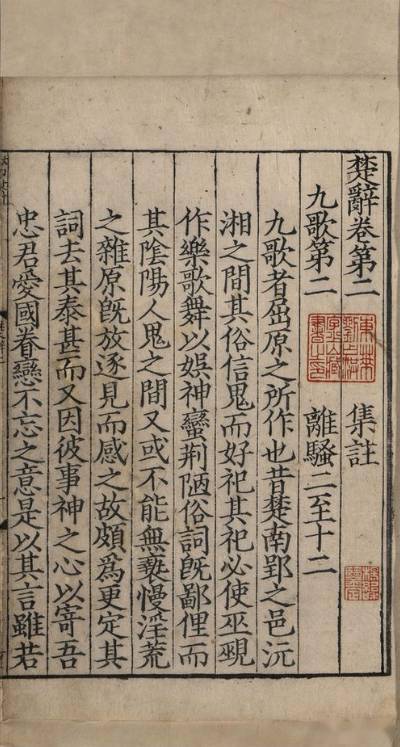 楚辭卷第二 集註
九歌第二 離騷二至十二
九歌者屈原之所作也昔楚南郢之邑沅
湘之間其俗信鬼而好祀其祀必使巫覡
作樂歌舞以娛神蠻荆陋俗詞旣鄙俚而
其陰陽人鬼之間又或不能無褻慢淫荒
之雜原旣放逐見而感之故頗為更定其
詞去其泰甚而又因彼事神之心以寄吾
忠君愛國眷戀不忘之意是以其言雖若